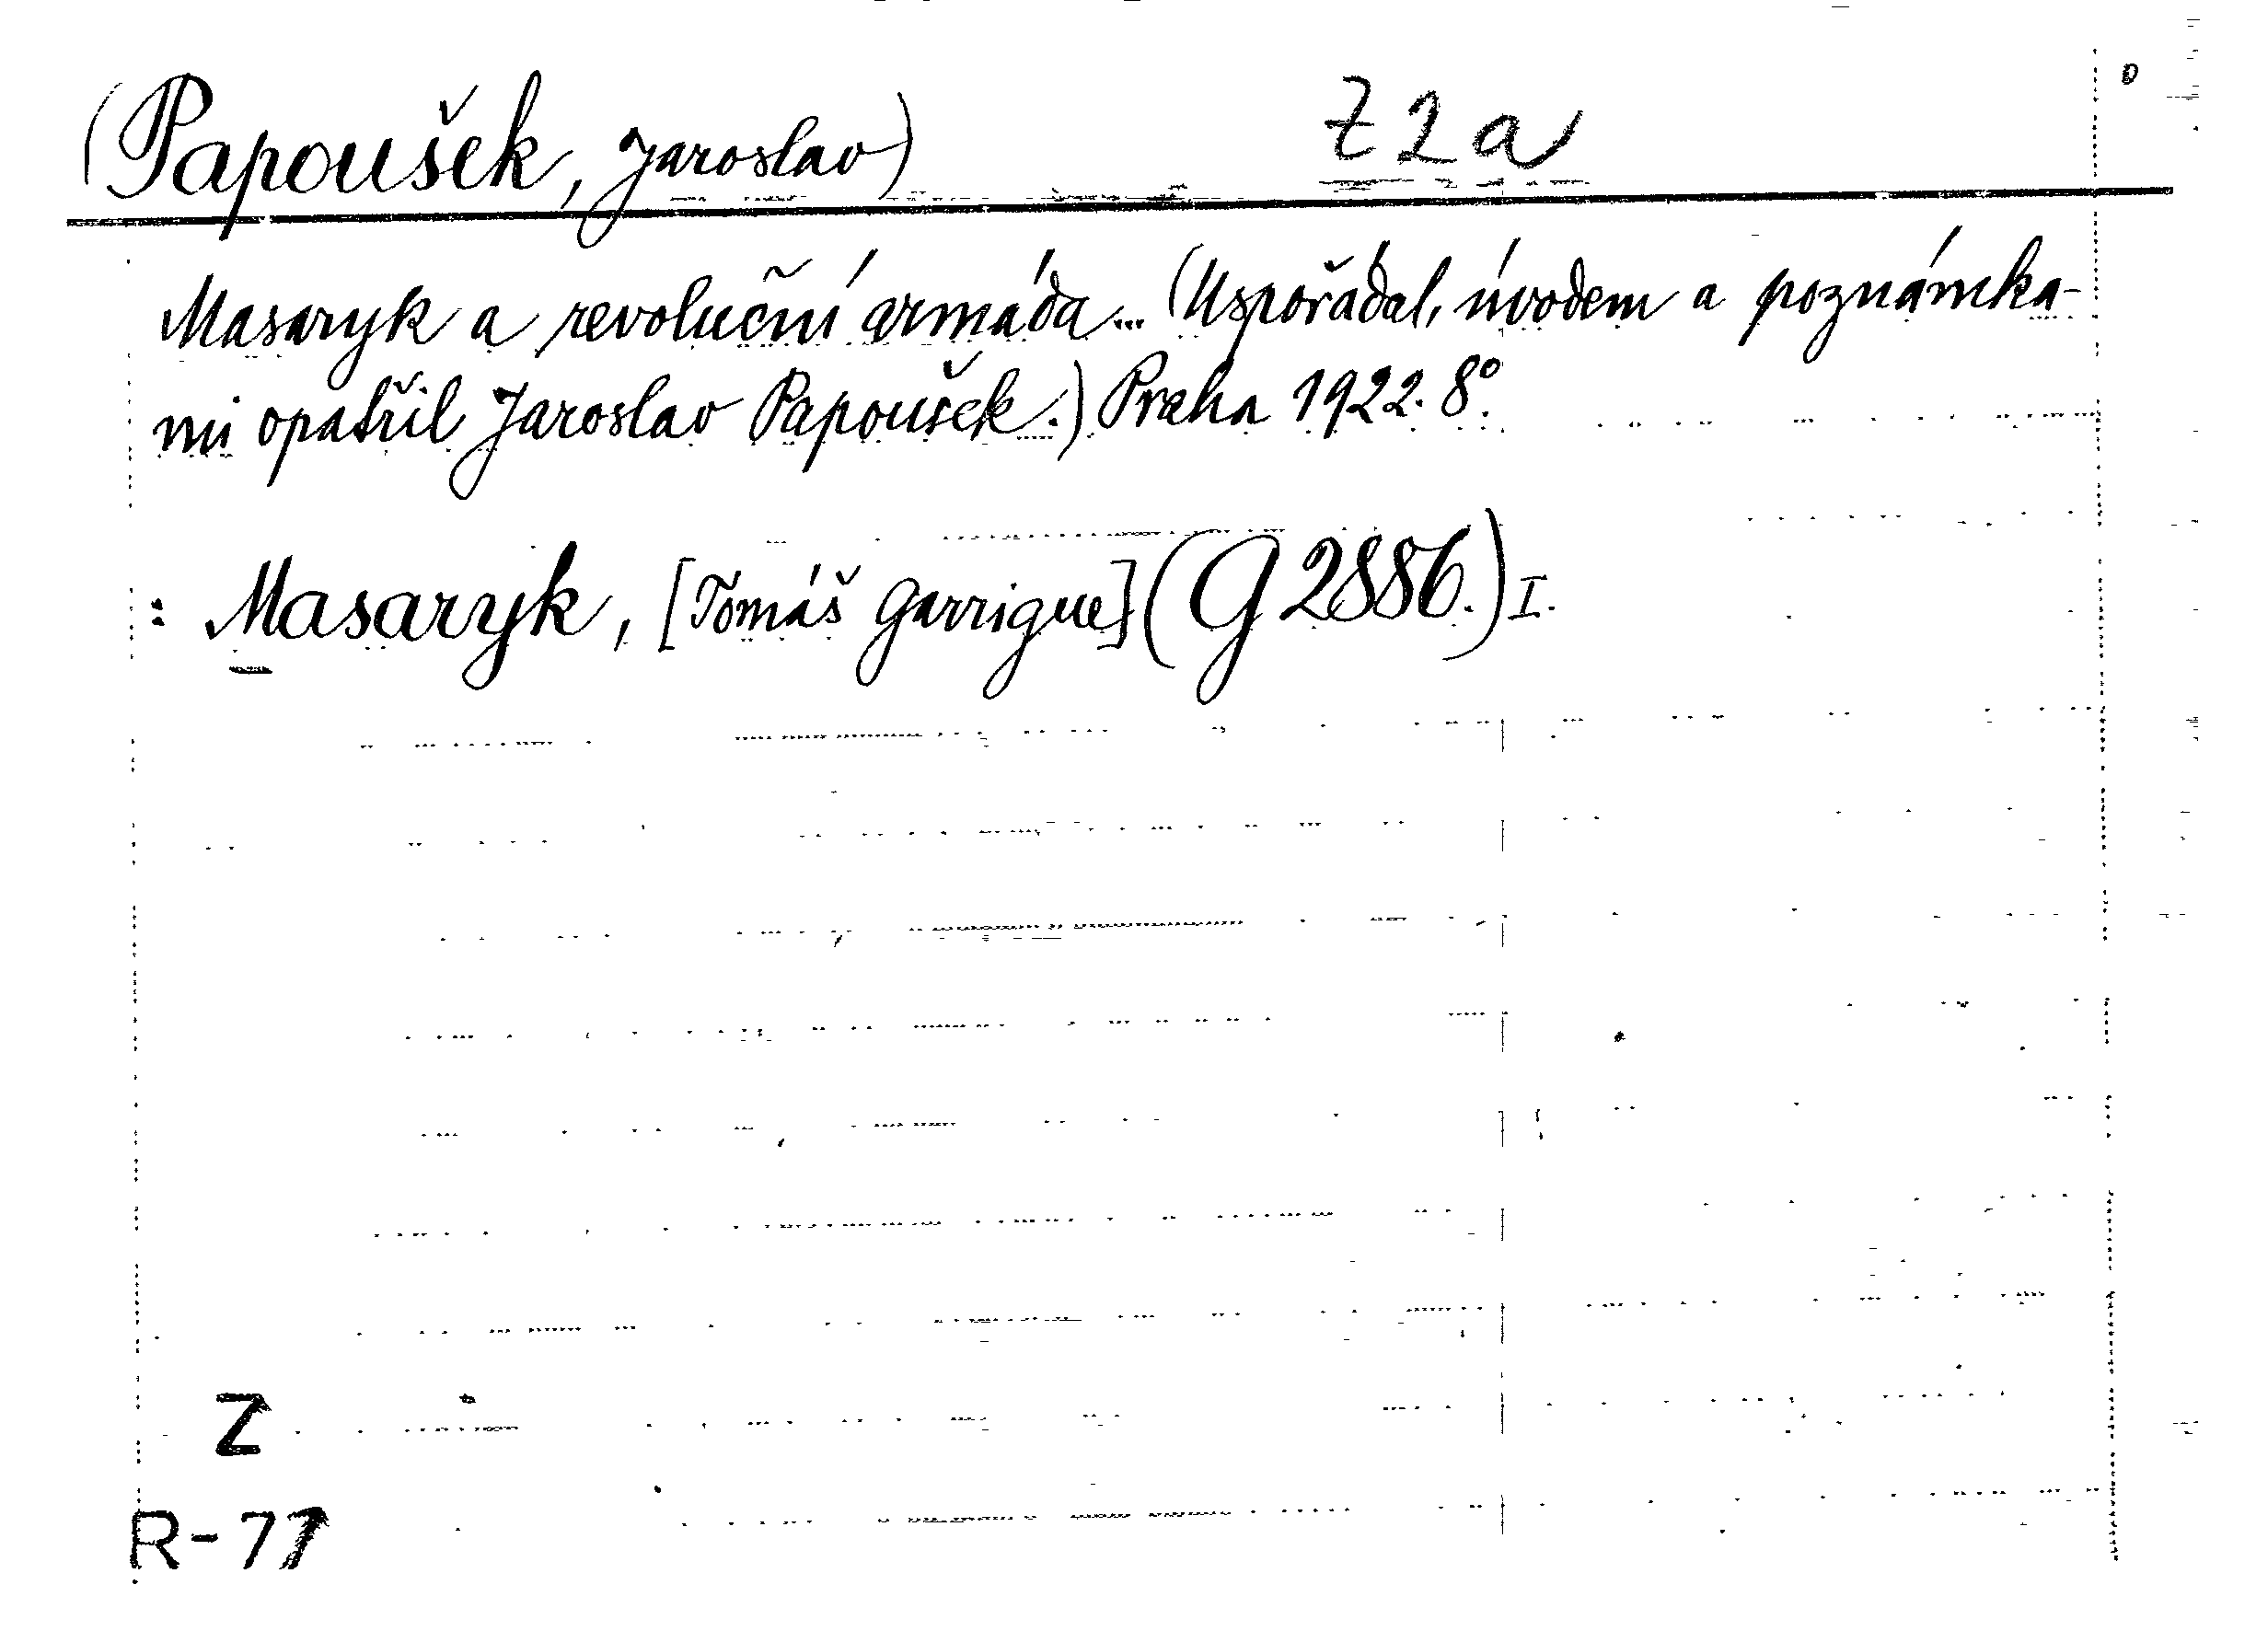 (Papoušek, Jaroslav) Z 2 a
Masaryk a revoluční armáda... (Uspořádal, úvodem a poznámka-
mi opatřil Jaroslav Papoušek.) Praha 1922. 8°.
: Masaryk, [Tomáš Garrigue] (G 2886.) I.
Z
R-77